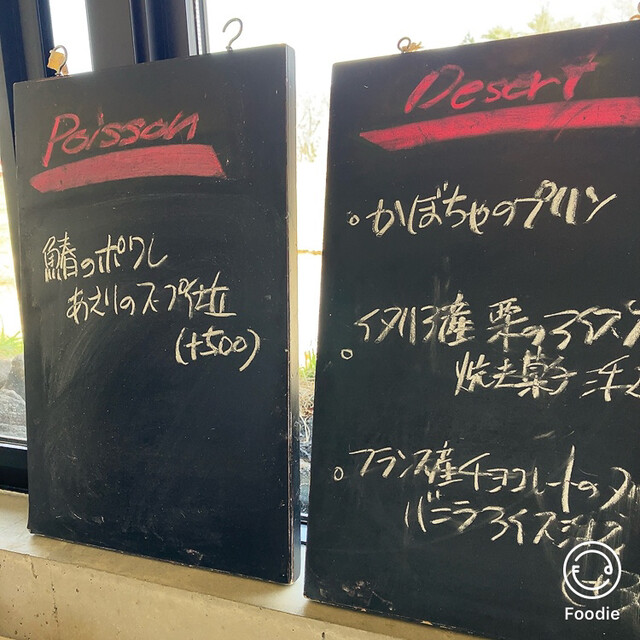 Poisson
鰆のポワレ
あさりのスープ仕立
(+500)
Desert
かぼちゃのプリン
イタリア産 栗のアイス
焼き菓子 添え
フランス産チョコレートの
バニラアイス
Foodie